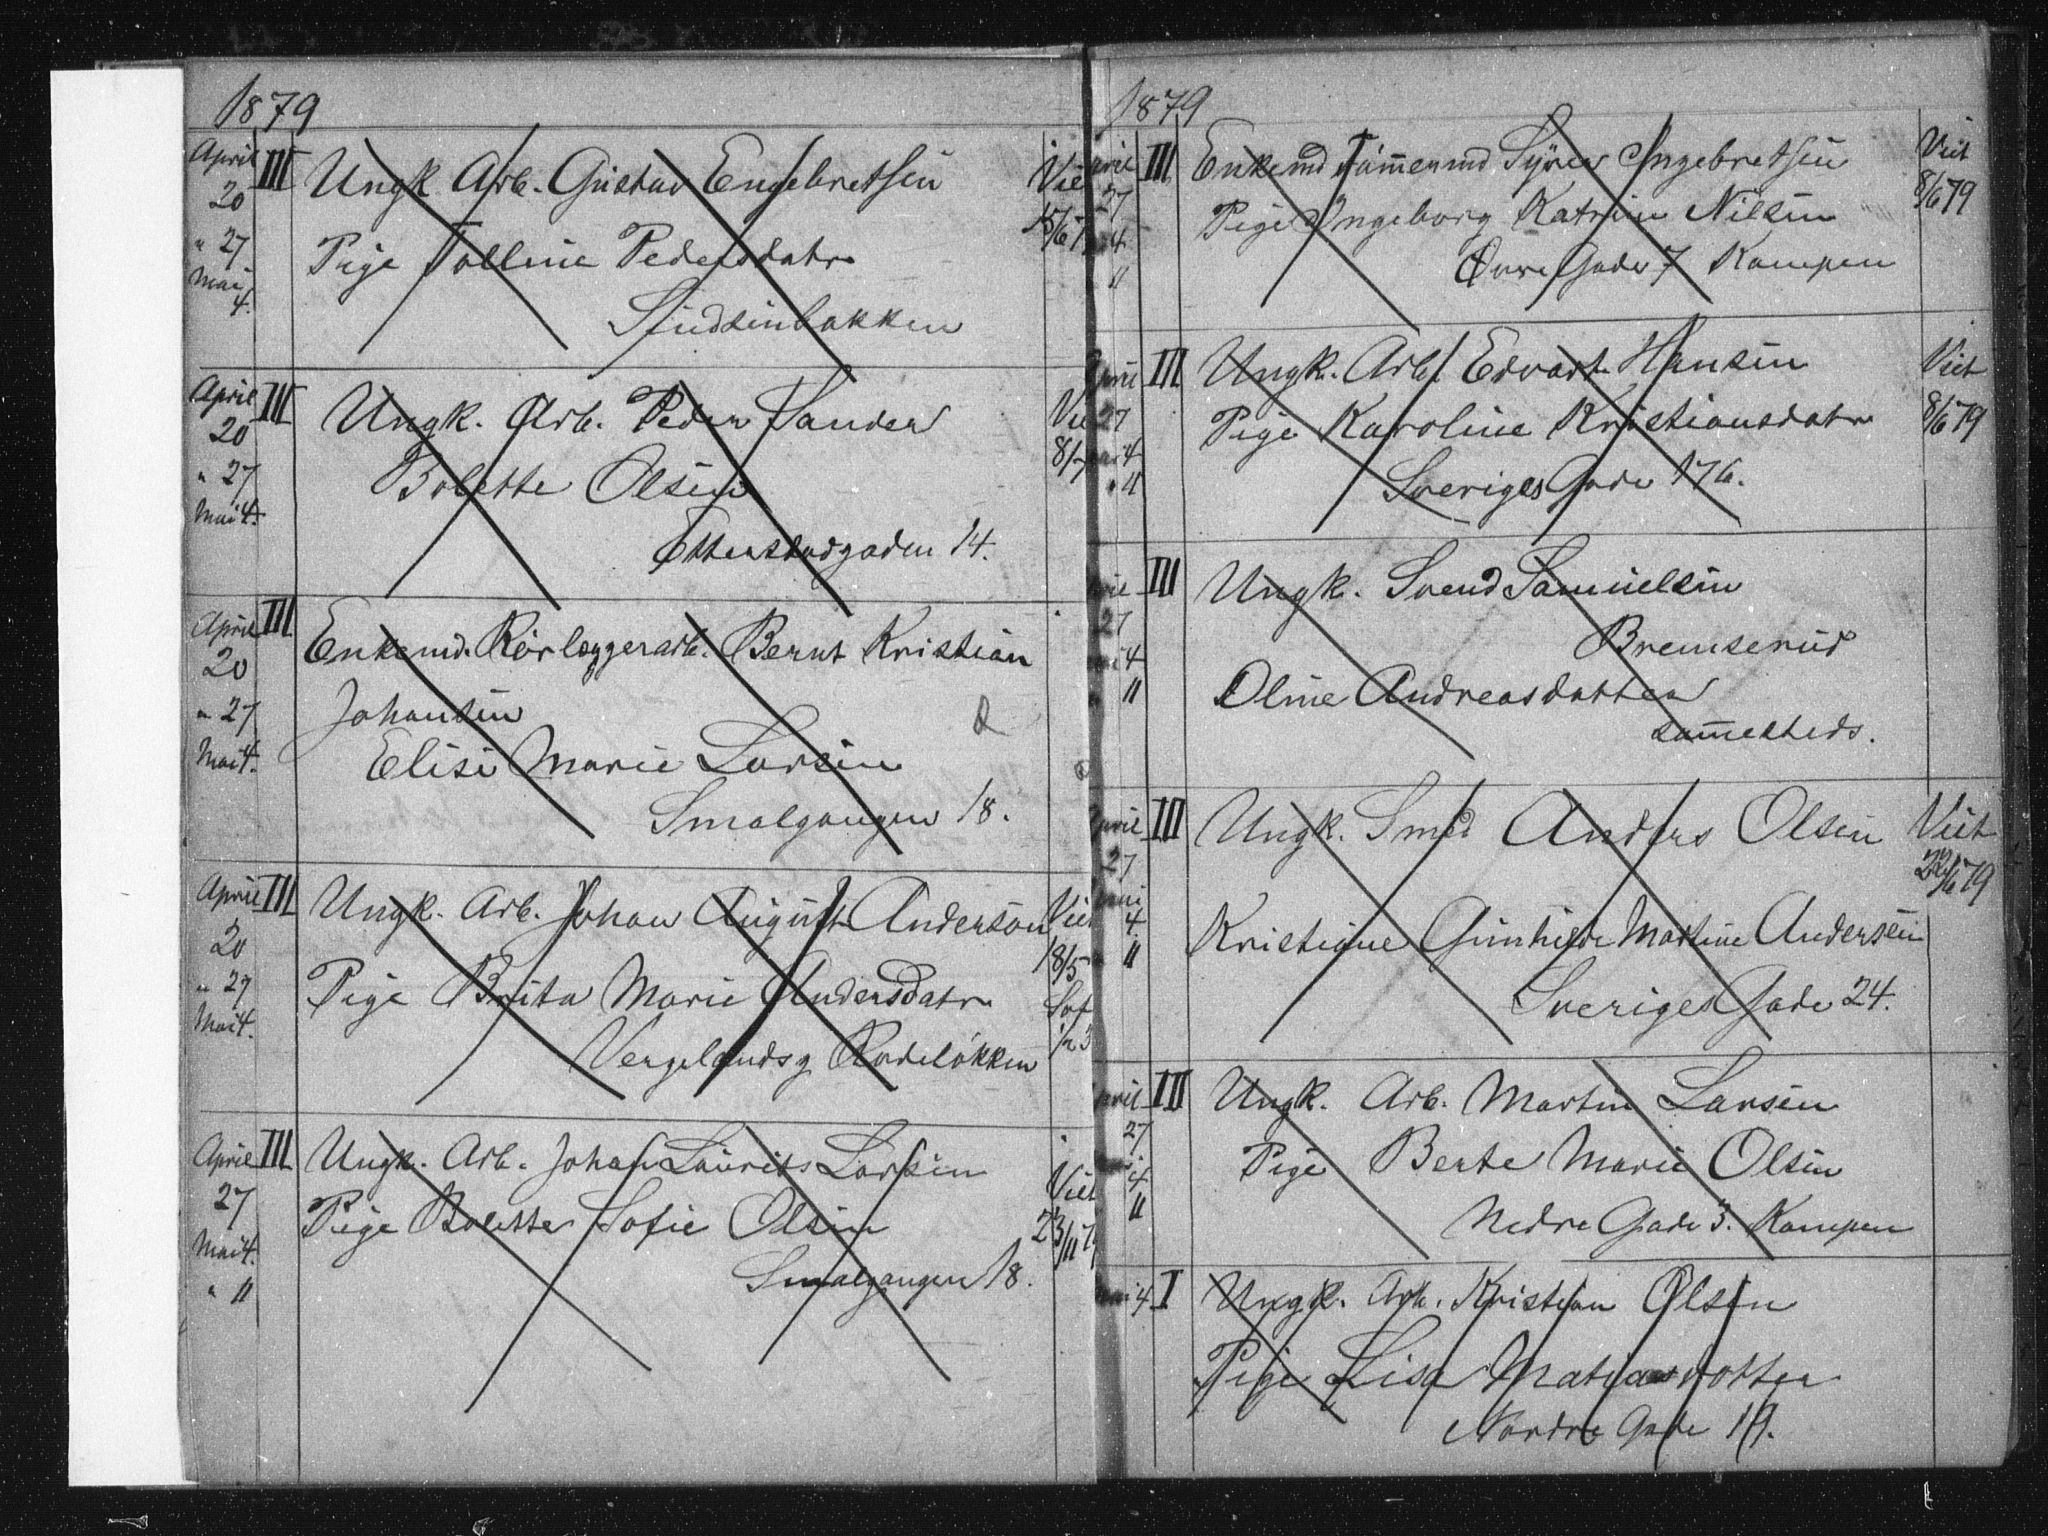 1879
April III Ungk. Arb. Gustav Engebretsen Viet
20 15/6 7
" 27 Pige Folline Pedersdatr
Mai
4.
April III Ungk. Arb. Peder Sander Vi
20
" 27 Bolette Olsen 8/7
Mai 4. Etterstadgaden 14.
April III Enkemd. Rørlæggerarb. Bernt Kristian
20
" 27 Johansen
Mai 4. Elise Marie Larsen
Smalgangen 18.
April III Ungk. Arb. Johan August Anderson Viet
20 18/5
" 27 Pige Brita Marie Andersdatr
Mai 4. Vergelandsg Rodeløkken
April III Ungk. Arb. Johan Laurits Larsen Viet
27 Pige Bolette Sofie Olsen 23/11 7
Mai 4.
" 11 Smalgangen 18.
1879
III Enkemd Tømmermd Syver Ingebretsen Viet
27 Pige Ingeborg Katrin Nilsen 8/6 79
4 Øvre Gade 7 Kampen
11
April III Ungk. Arb. Edvart Hansen Viet
27 Pige Karoline Kristiansdatr 8/6 79
4
" 11 Sveriges Gade 176.
III Ungk. Svend Samuelsen
27 Bremserud
4
11 Oline Andreasdatter
sammesteds.
April III Ungk. Smed Anders Olsen Viet
27 22/6 79
Mai
4
11 Kristiane Gunhilde Martine Andersen
Sveriges Gade 24.
April III Ungk. Arb. Martin Larsen
27 Pige Berte Marie Olsen
4
11 Nedre Gade 3. Kampen
Mai 4 I Ungk. Arb. Kristian Olsen
Pige Lisa Matiasdotter
Nordre Gade 19.